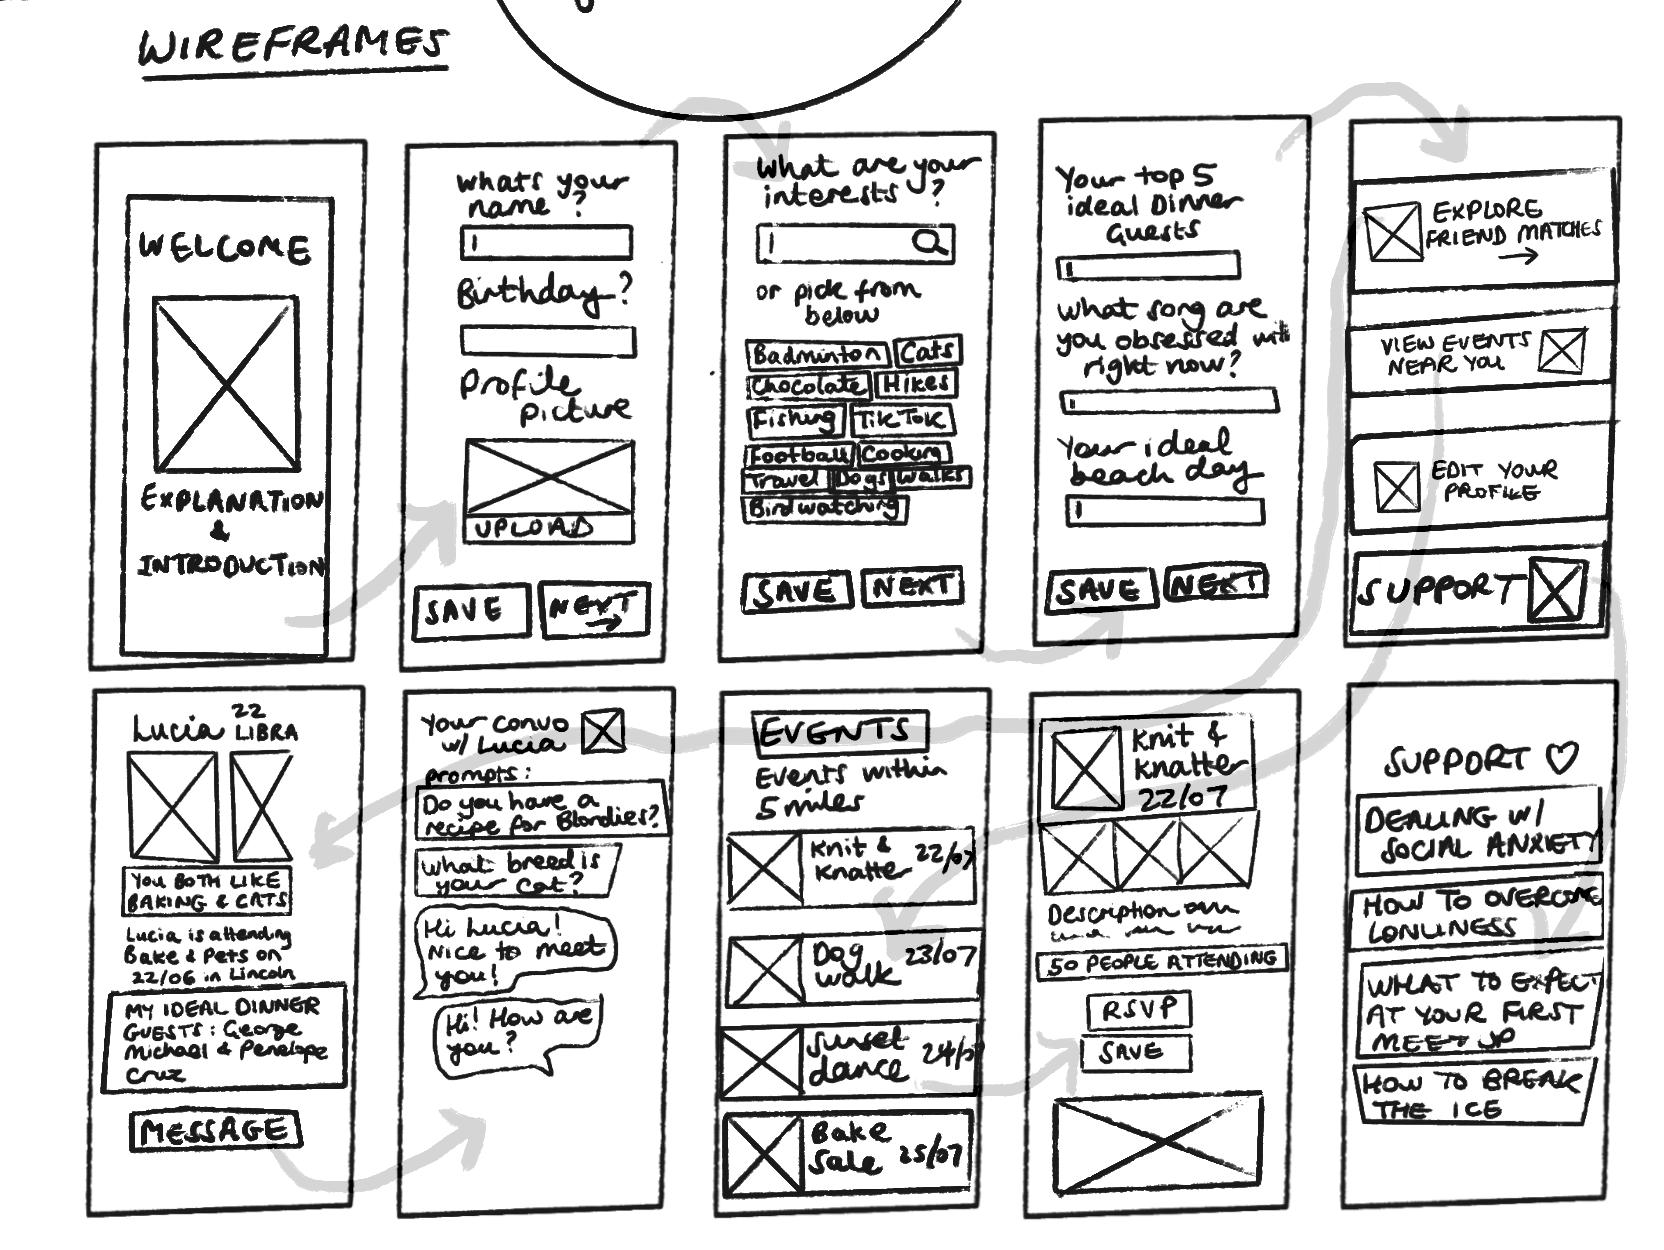 WIREFRAMES
WELCOME
EXPLANATION
&
INTRODUCTION
Whats your
name?
Birthday?
Profile
picture
UPLOAD
SAVE
NEXT
What are your
interests?
or pick from
below
Badminton
Cats
Chocolate
Hikes
Fishing
TikTok
Football
Cooking
Travel
Dogs
Walks
Birdwatching
SAVE
NEXT
Your top 5
ideal Dinner
Guests
What song are
you obsessed with
right now?
Your ideal
beach day
SAVE
NEXT
EXPLORE
FRIEND MATCHES
VIEW EVENTS
NEAR YOU
EDIT YOUR
PROFILE
SUPPORT
Lucia 22
LIBRA
YOU BOTH LIKE
BAKING & CATS
Lucia is attending
Bake & Pets on
22/06 in Lincoln
MY IDEAL DINNER
GUESTS: George
Michael & Penelope
Cruz
MESSAGE
Your convo
w/ Lucia
prompts:
Do you have a
recipe for Blondies?
What breed is
your cat?
Hi Lucia!
Nice to meet
you!
Hi! How are
you?
EVENTS
Events within
5 miles
Knit & 22/07
Knatter
Dog 23/07
walk
Sunset 24/07
dance
Bake
Sale 25/07
Knit &
Knatter
22/07
Description
50 PEOPLE ATTENDING
RSVP
SAVE
SUPPORT ♡
DEALING W/
SOCIAL ANXIETY
HOW TO OVERCOME
LONLINESS
WHAT TO EXPECT
AT YOUR FIRST
MEET UP
HOW TO BREAK
THE ICE